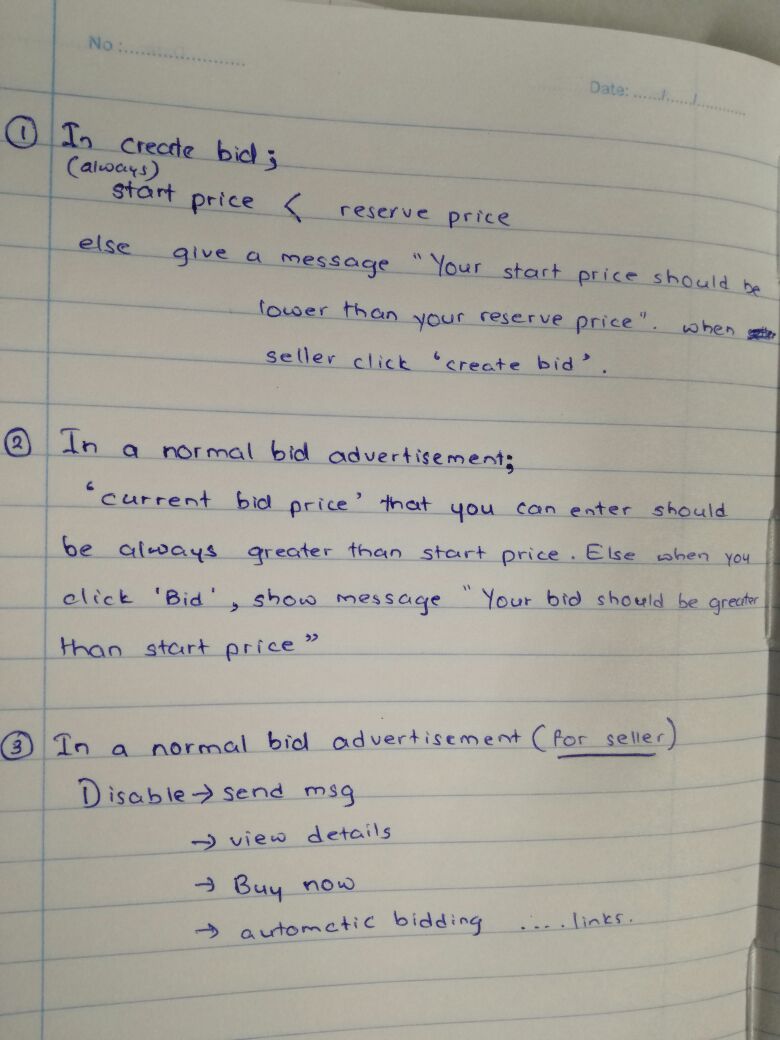 No :....................
Date: ....../....../............
① In create bid;
(always)
start price < reserve price
else give a message "Your start price should be
lower than your reserve price". when
seller click 'create bid'.
② In a normal bid advertisement;
'current bid price' that you can enter should
be always greater than start price. Else when you
click 'Bid', show message "Your bid should be greater
than start price"
③ In a normal bid advertisement (for seller)
Disable → send msg
→ view details
→ Buy now
→ automatic bidding ....links.